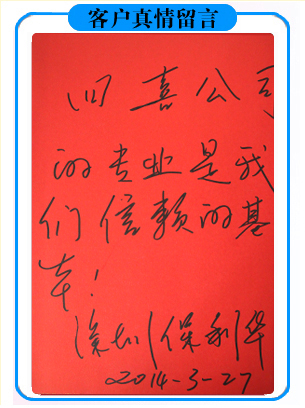 客户真情留言
四喜公司
的专业是我
们信赖的基
本！
深圳保利华
2014-3-27